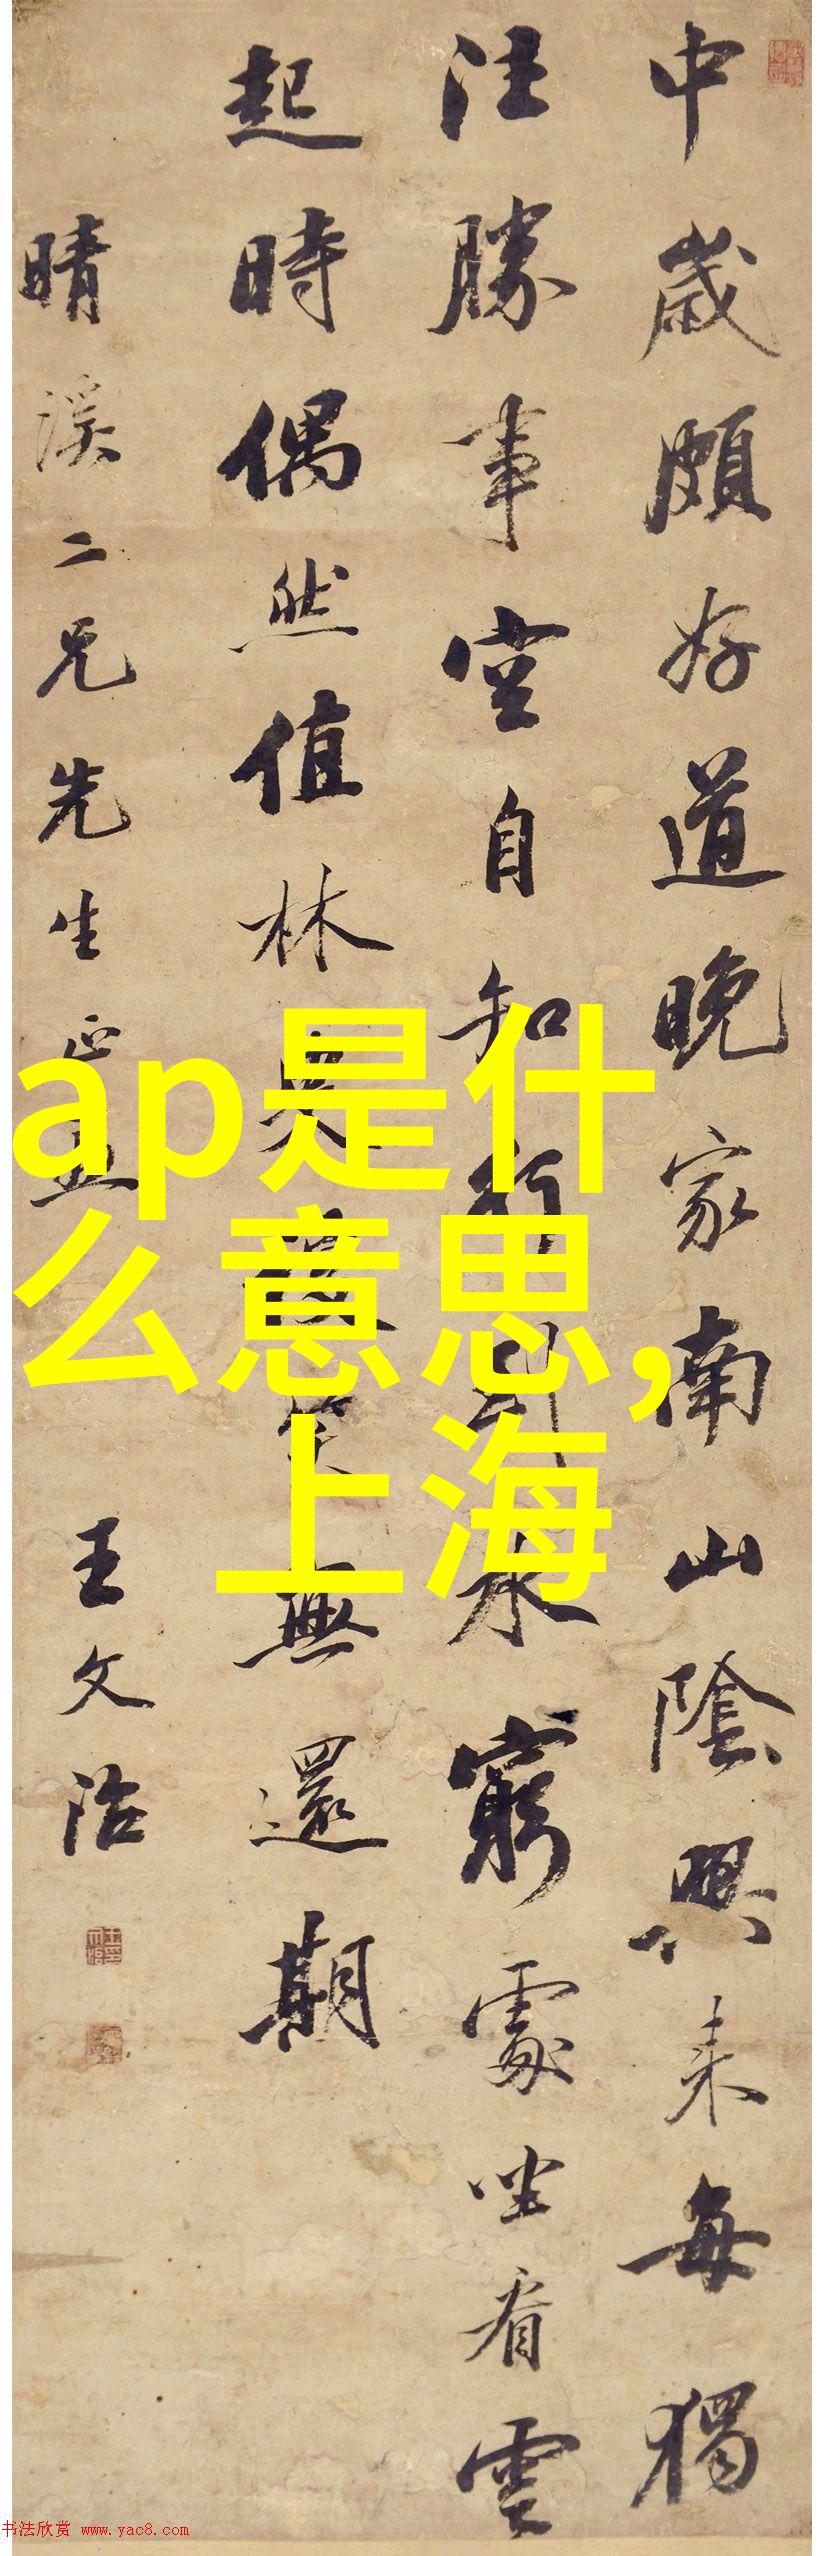 中歲頗好道晚家南山陰興来每獨
往勝事空自知行到水窮處坐看雲
起時偶然值林叟談笑無還期
晴溪二兄先生正 王文治
ap是什
么意思,
上海
书法欣赏 www.yac8.com